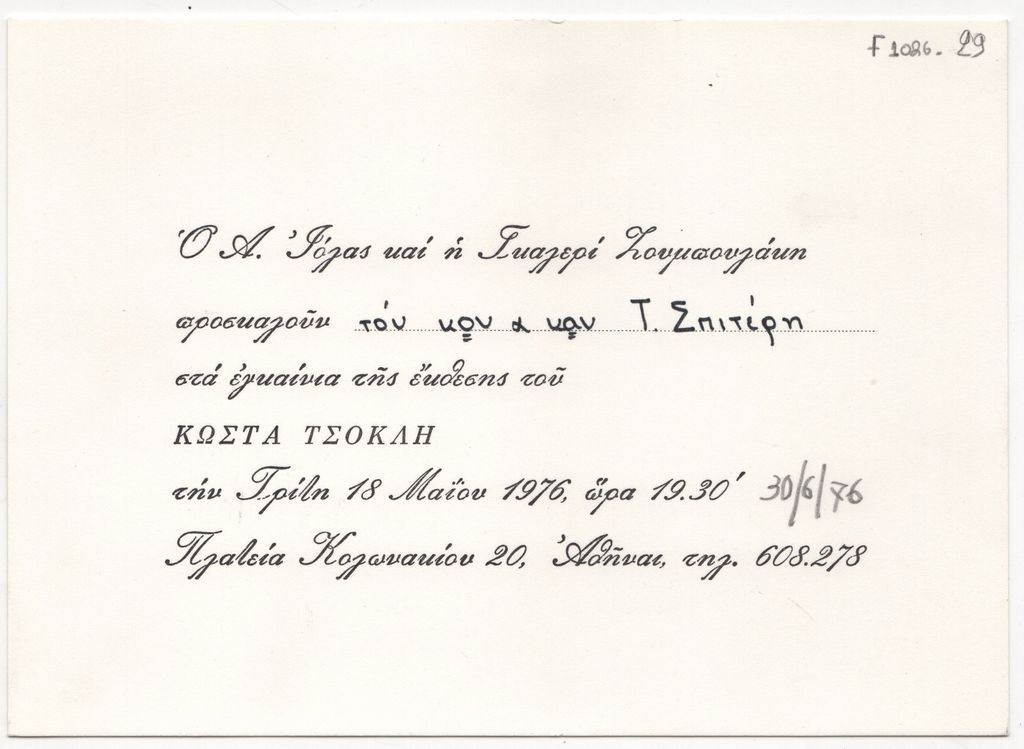 F 1026. 29
Ὁ Ἀ. Ἰόλας καί ἡ Γκαλερί Ζουμπουλάκη
προσκαλοῦν τόν κον & καν Τ. Σπιτέρη
στά ἐγκαίνια τῆς ἔκθεσης τοῦ
ΚΩΣΤΑ ΤΣΟΚΛΗ
τήν Τρίτη 18 Μαΐου 1976, ὥρα 19.30′ 30/6/76
Πλατεία Κολωνακίου 20, Ἀθῆναι, τηλ. 608.278